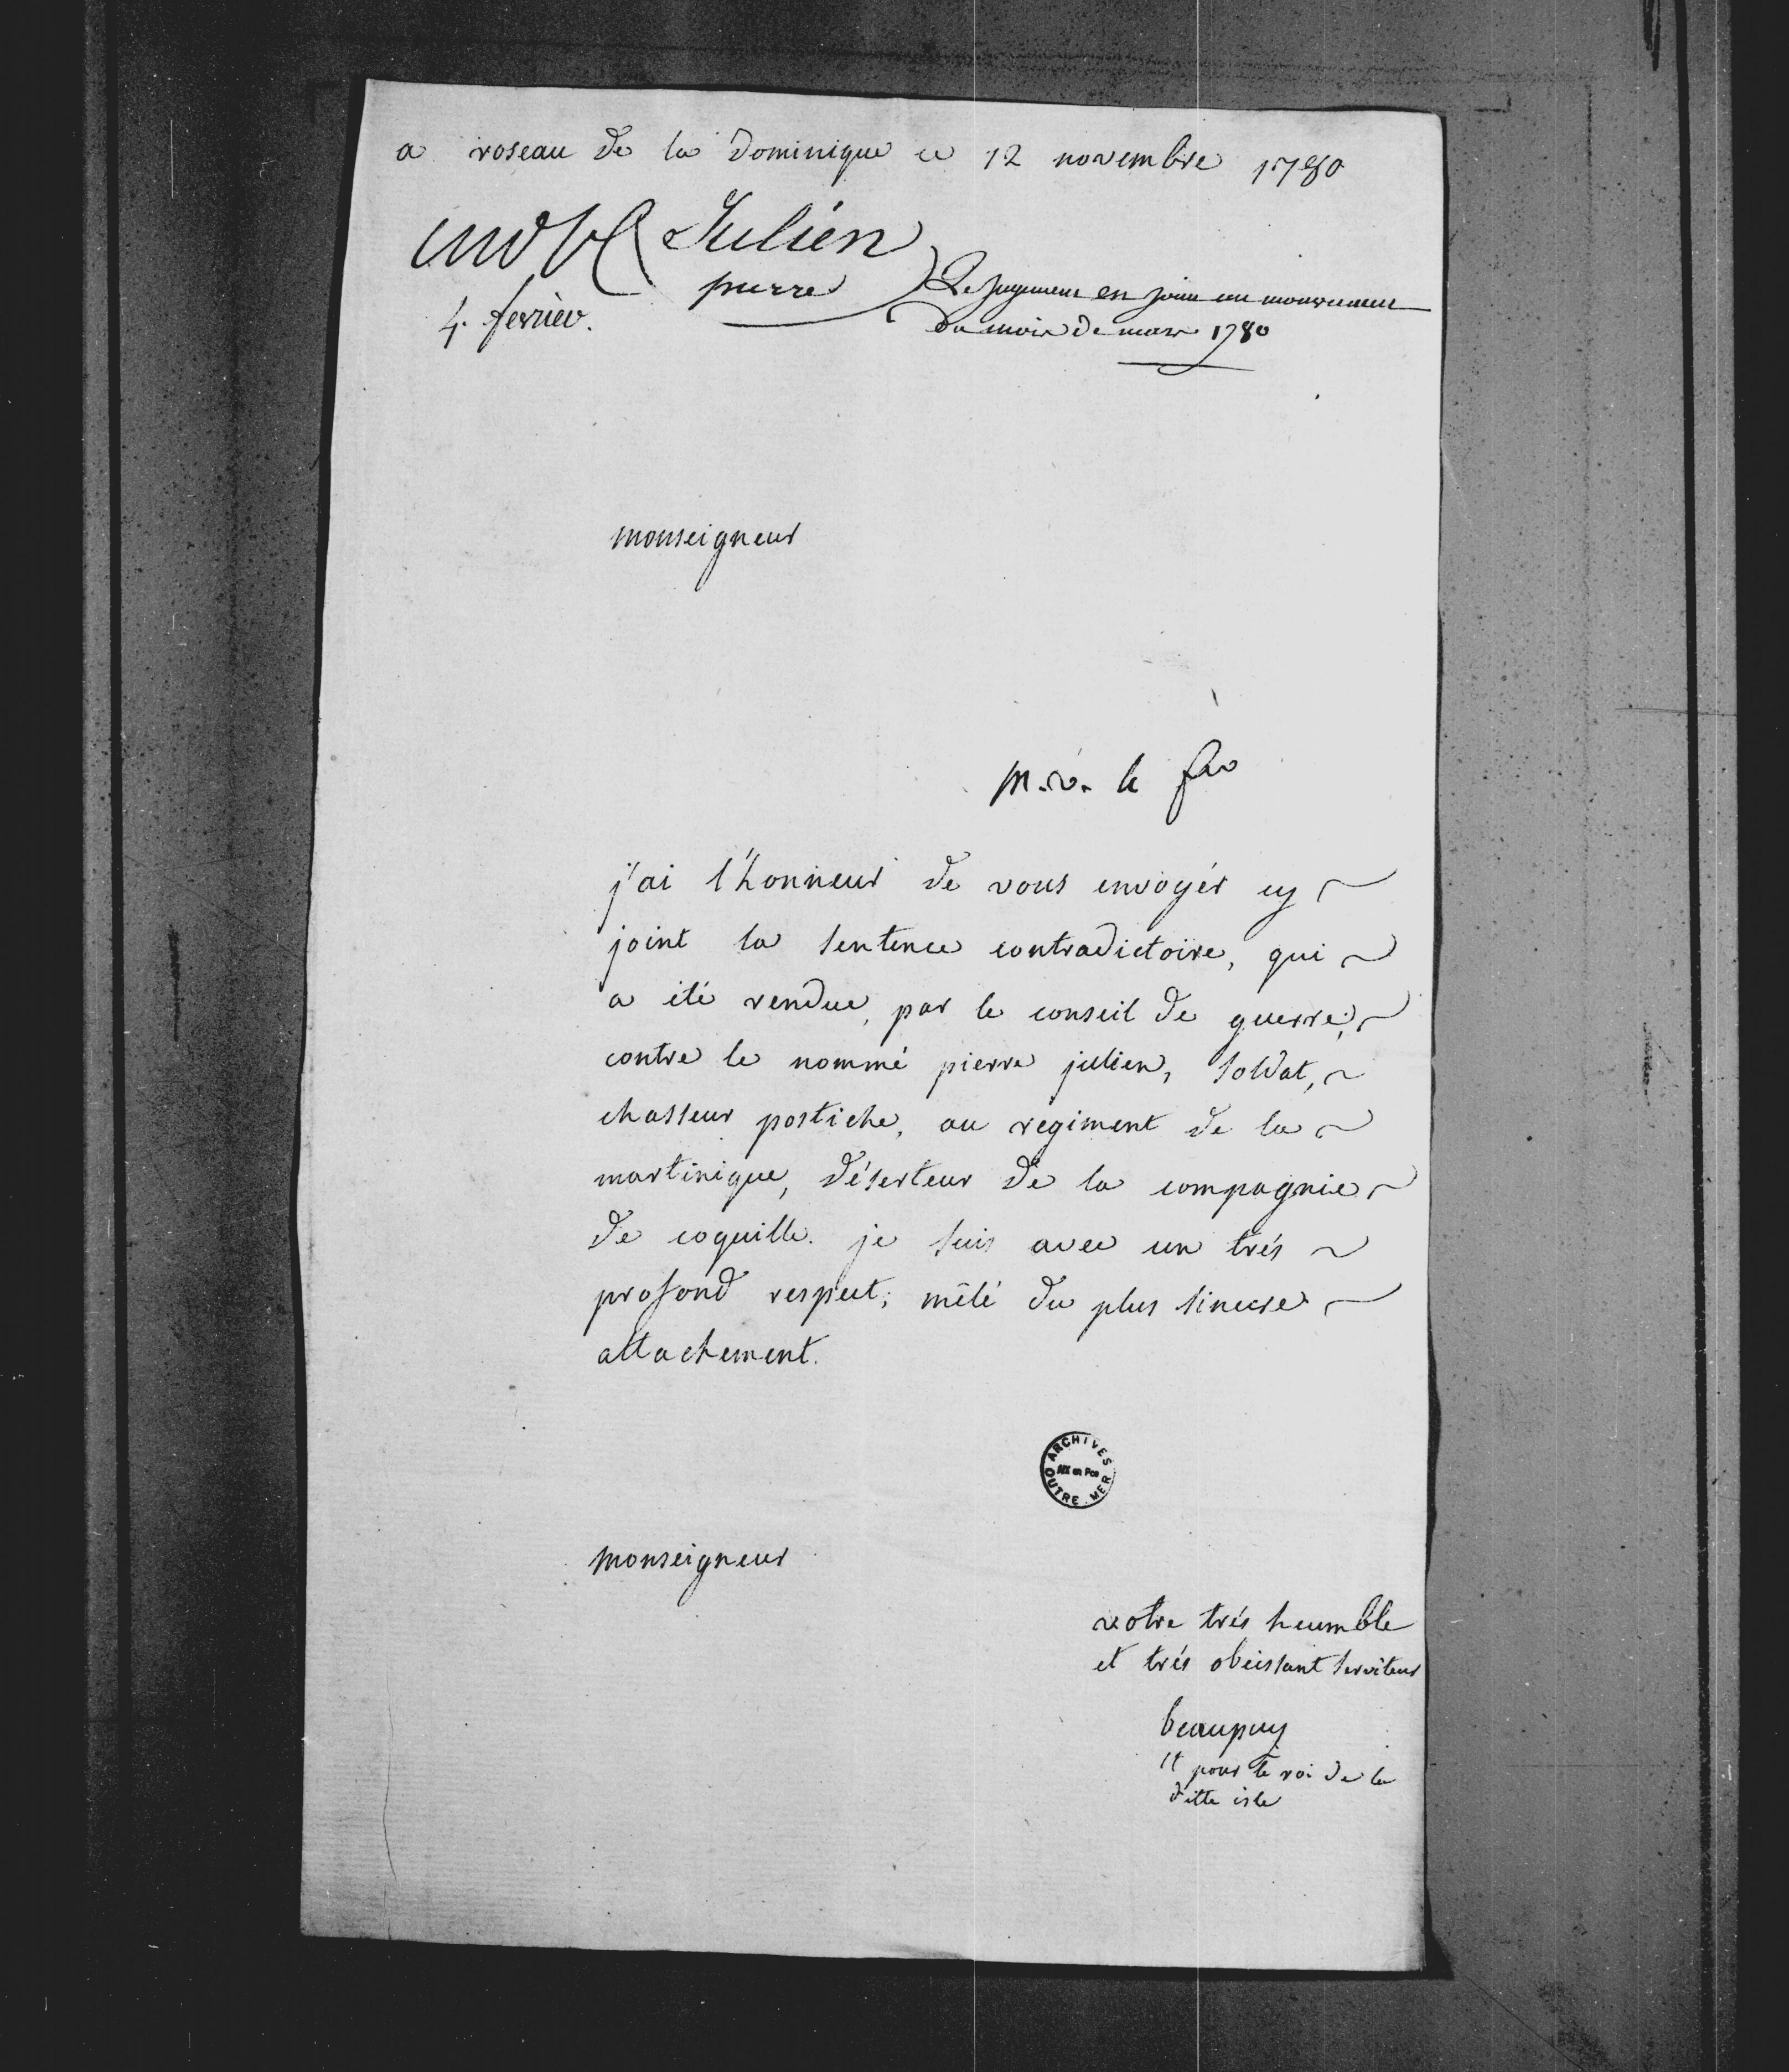 a roseau de la dominique ce 12 novembre 1780
Julién
pierre
Le jugement en joint au mouvement
du mois de mars 1780
4. fevrier.
monseigneur
j'ai l'honneur de vous envoyér cy
joint la sentence contradictoire, qui
a été rendue, par le conseil de guerre,
contre le nommé pierre julien, soldat,
chasseur postiche, au regiment de la
martinique, déserteur de la compagnie
de coquille. je suis avec un trés
profond respect, mêlé du plus sincere
attachement.
ARCHIVES
OUTRE MER
monseigneur
votre trés heumble
et trés obeissant serviteur
beaupuy
lt pour le roi de la
ditte isle